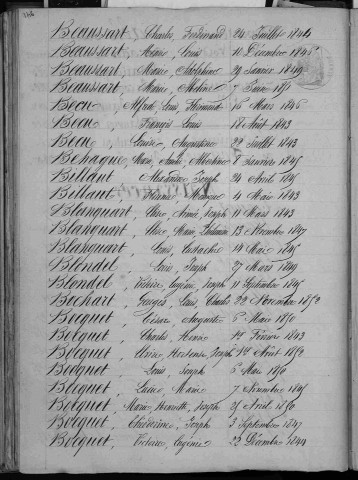 Beaussart, Charles Ferdinand 24 Juillet 1844
Beaussart, Louis 11 Décembre 1845
Beaussart, Marie, Adolphine 29 Janvier 1849
Beaussart, Marie, 7
Becu, Alfred, Louis, 15 Mars 1846
Becu, François Louis 18 Août 1843
Becu, Louise, Augustine 29 Juillet 1843
Behague, Marie, 8 Janvier 1845
Billaut, Alexandre Joseph 24 Avril 1845
Billaut, 4 Mai 1843
Blanquart, Joseph 11 Mars 1843
Blanquart, Marie, 13 Novembre 1847
Blanquart, Louis, Eustache 14 Mai 1845
Blondel, Louis, Joseph 27 Mars 1849
Blondel, Victoire, Eugénie 11 Septembre 1845
Bochart, Georges Louis Charles 22 Novembre 1852
Bocquet, César, Auguste 5 Mars 1850
Bocquet, Charles, Henri 1er Février 1843
Bocquet, Hortense, Joseph 1er Août 1852
Bocquet, Louis, Joseph 5 Mai 1850
Bocquet, Lucie, Marie 7 Novembre 1845
Bocquet, Marie Henriette, Joseph 25 Avril 1850
Bocquet, Théodorine, Joseph 3 Septembre 1847
Bocquet, Victoire, Eugénie 23 Décembre 1844